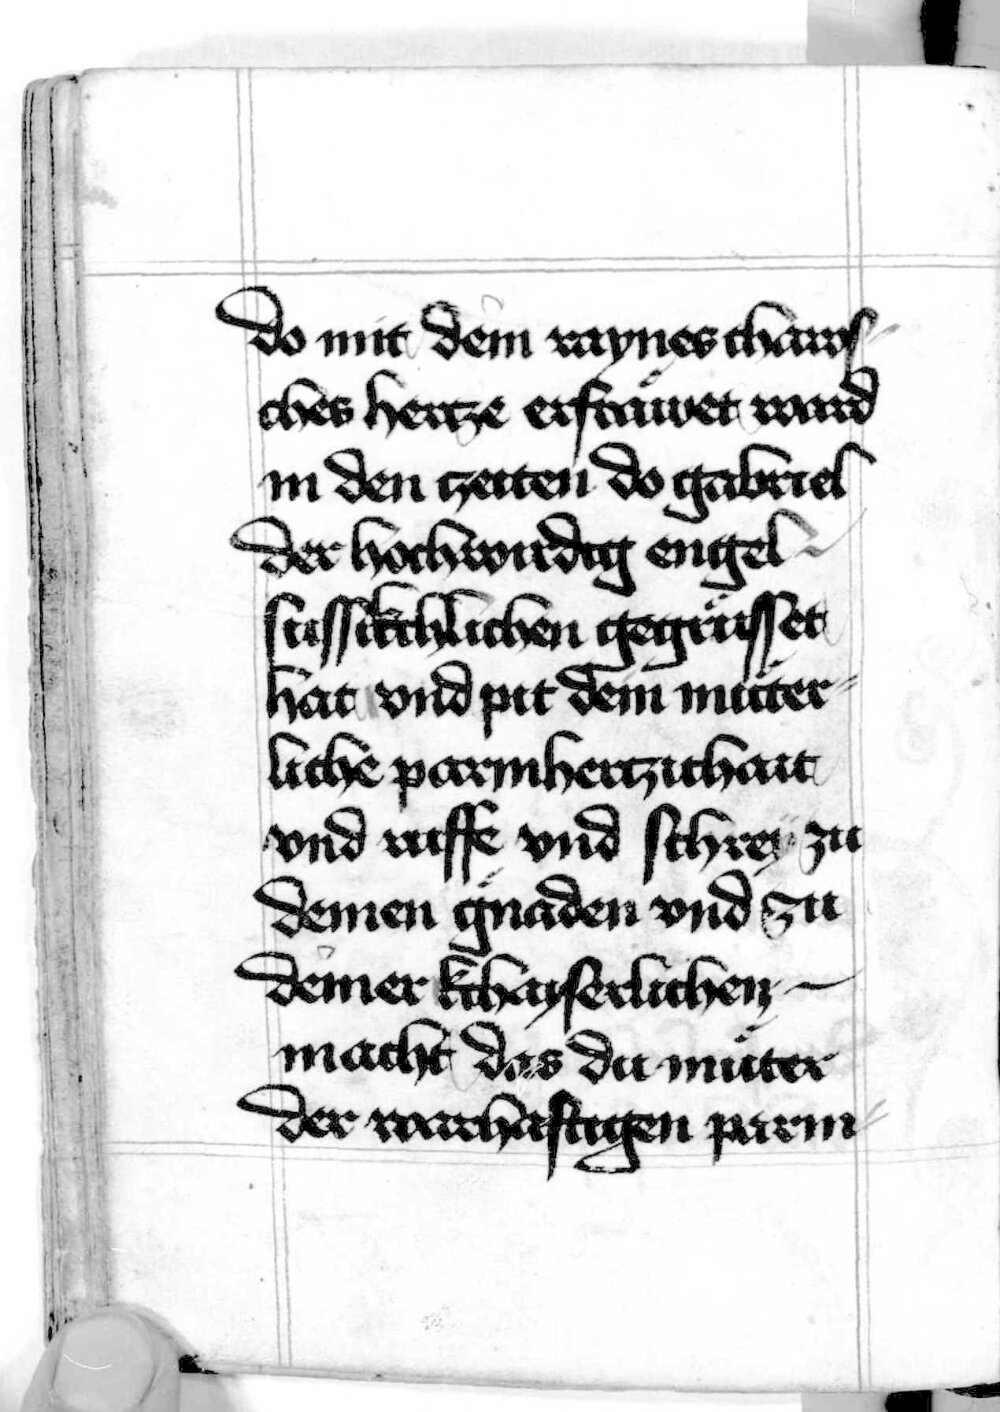 do mit dein raynes chaws
ches hertze erfräwet ward
in den zeiten do gabriel
der hochwirdig engel
süssikchlichen gegrüsset
hat vnd pit dein müter
liche parmhertzichait
vnd ruffe vnd schrey zu
deinen gnaden vnd zu
deiner kchayserlichen
macht das du müter
der warhafftigen parm